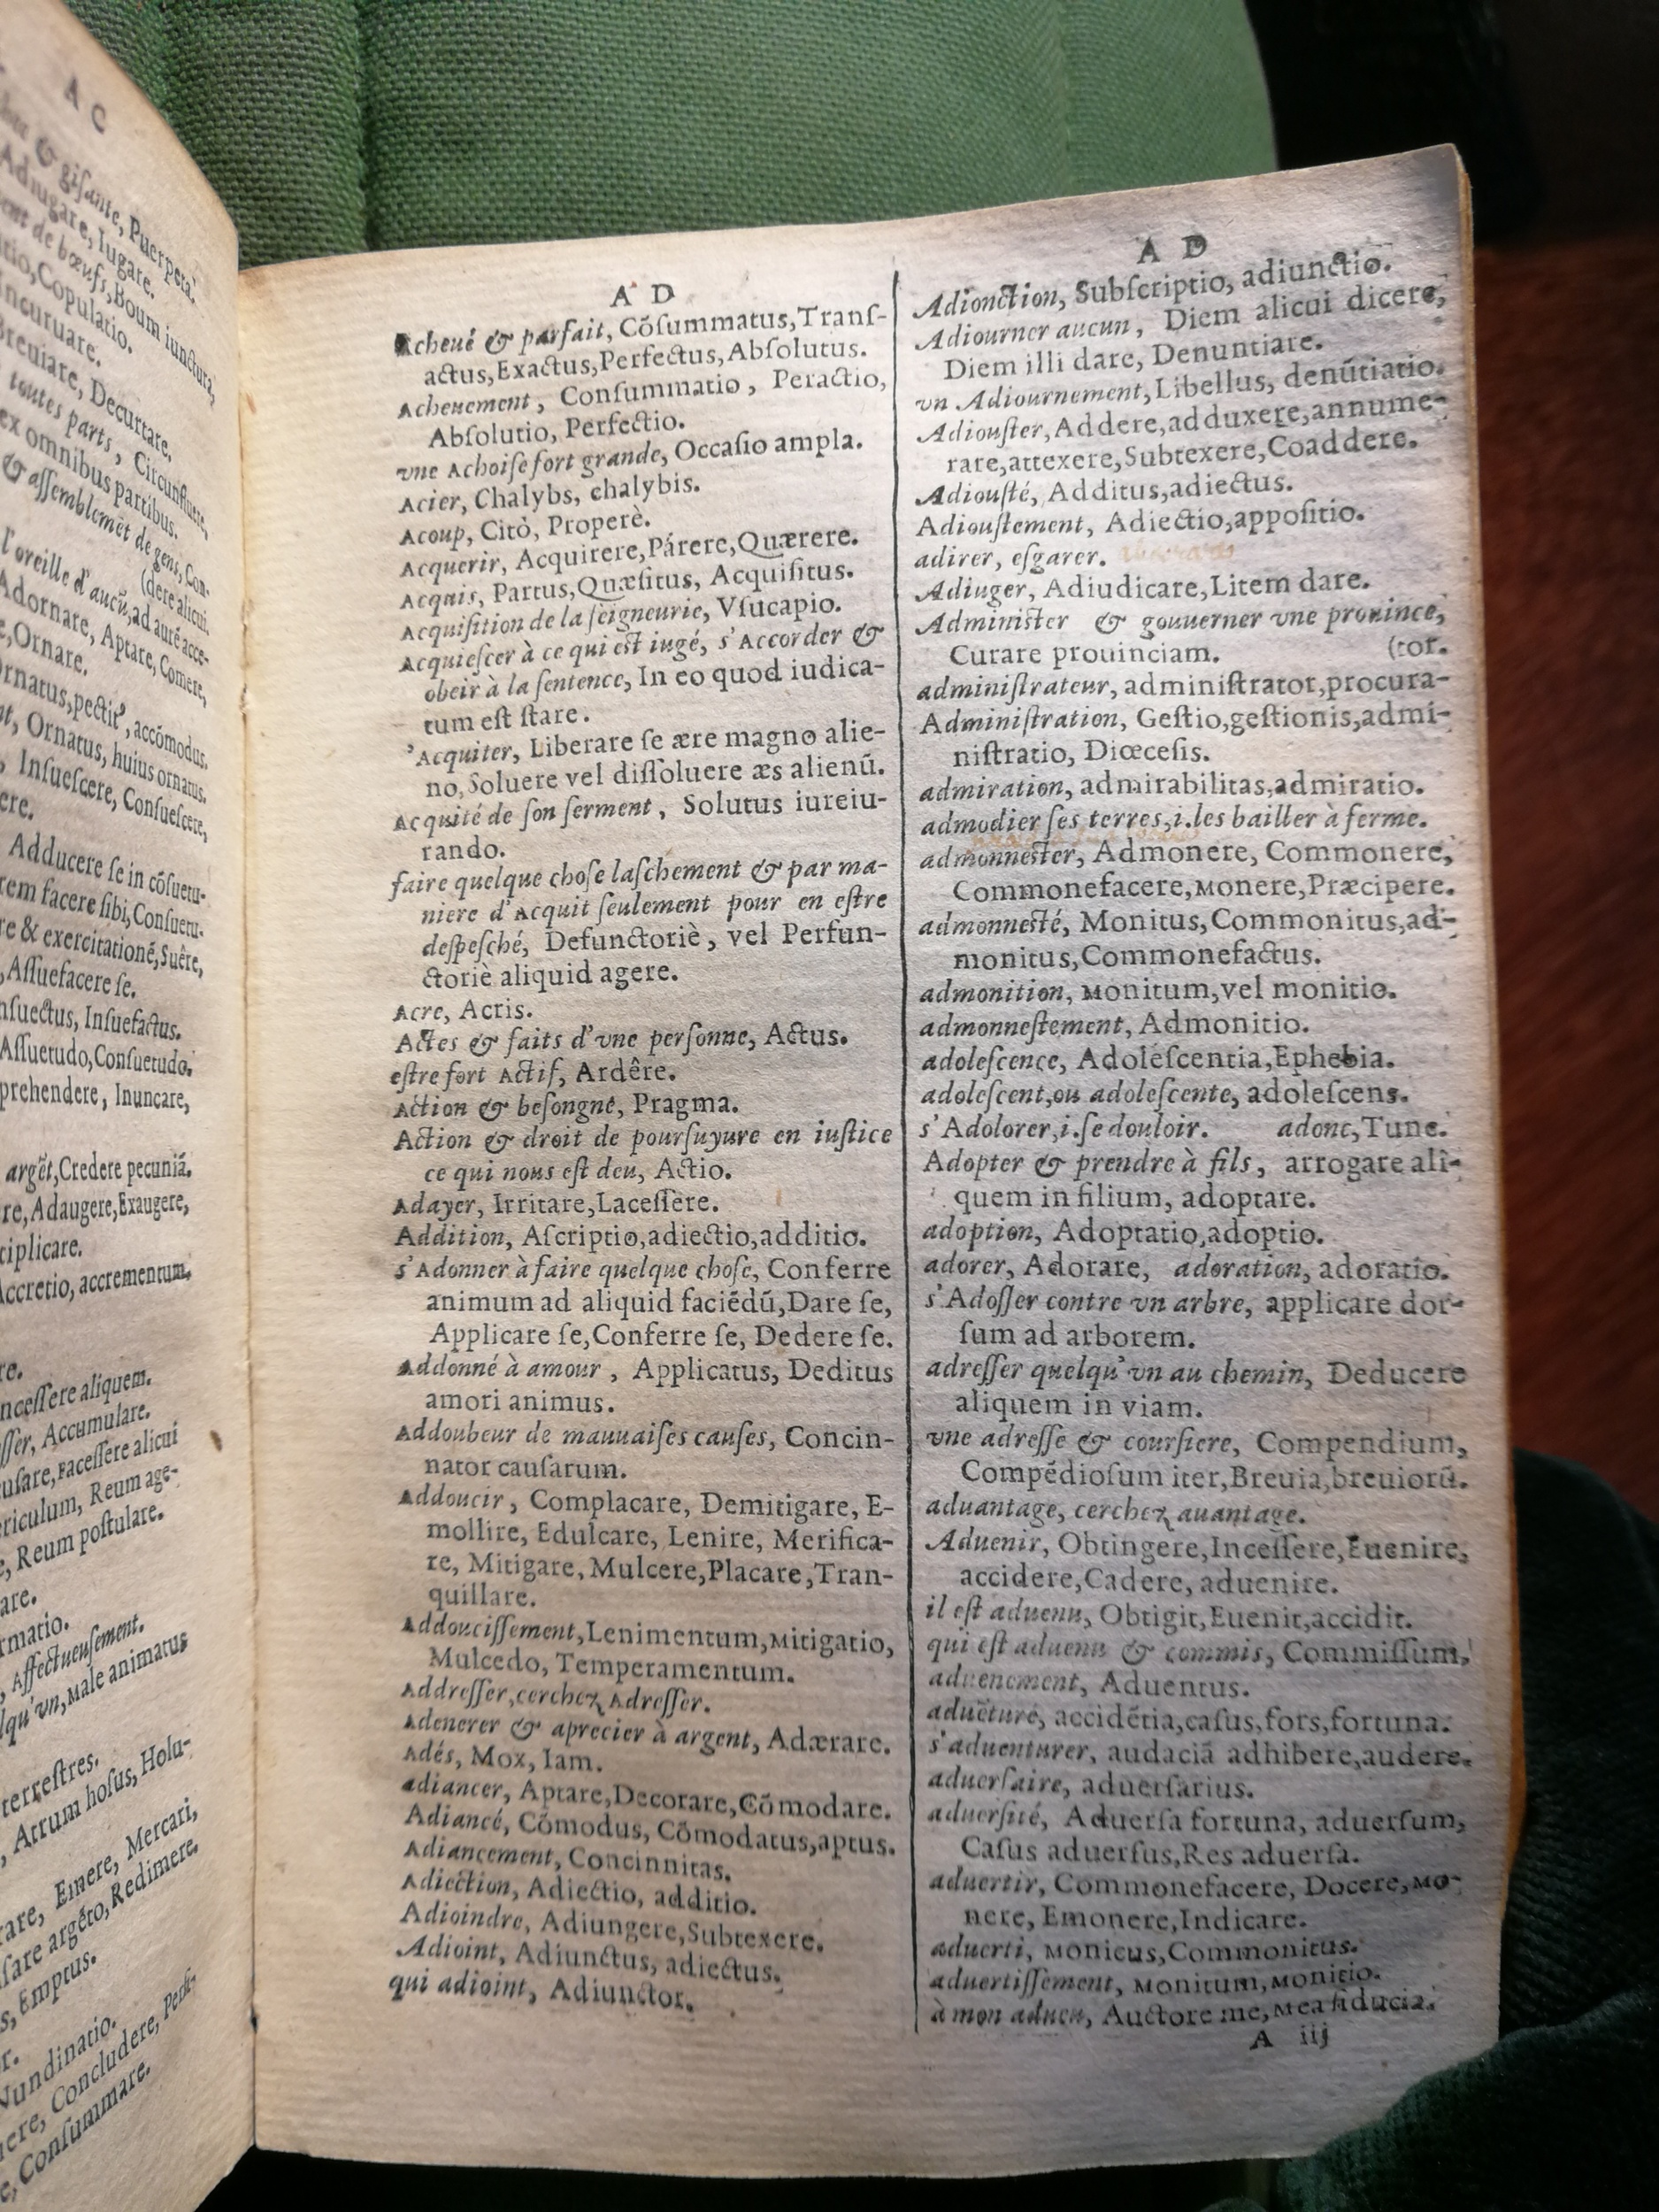 A C
& giſante, Puerpera.
Adiugare, Iugare.
ent de bœufs, Boum iunctura,
Copulatio.
Incuruare.
Breuiare, Decurtare.
toutes parts, Circunfluere,
ex omnibus partibus.
& aſſemblemēt de gens, Con-
(dere alicui.
l'oreille d'aucū, ad aurē acce-
Adornare, Aptare, Comere,
Ornare.
Ornatus, pectitꝰ, accōmodus.
Ornatus, huius ornatus.
Inſueſcere, Conſueſcere,
ere.
Adducere ſe in cōſuetu-
rem facere ſibi, Conſuetu-
re & exercitationē, Suêre,
Aſſuefacere ſe.
nſuectus, Inſuefactus.
Aſſuetudo, Conſuetudo.
prehendere, Inuncare,
argēt, Credere pecuniā.
re, Adaugere, Exaugere,
tiplicare.
Accretio, accrementum,
re.
nceſſere aliquem.
ſſer, Accumulare.
uſare, Faceſſere alicui
ericulum, Reum age-
Reum poſtulare.
are.
rmatio.
Affectueuſement.
lqu'vn, Male animatus
terreſtres.
Atrum hoſus, Holu-
rare, Emere, Mercari,
ſare argēto, Redimere.
s, Emptus.
Nundinatio.
Concludere, Perfi-
Conſummare.
A D
Acheué & parfait, Cōſummatus, Tranſ-
actus, Exactus, Perfectus, Abſolutus.
Acheuement, Conſummatio, Peractio,
Abſolutio, Perfectio.
vne Achoiſe fort grande, Occaſio ampla.
Acier, Chalybs, chalybis.
Acoup, Citò, Properè.
Acquerir, Acquirere, Párere, Quærere.
Acquis, Partus, Quæſitus, Acquiſitus.
Acquiſition de la ſeigneurie, Vſucapio.
Acquieſcer à ce qui eſt iugé, s'Accorder &
obeir à la ſentence, In eo quod iudica-
tum eſt ſtare.
'Acquiter, Liberare ſe ære magno alie-
no, Soluere vel diſſoluere æs alienū.
Acquité de ſon ſerment, Solutus iureiu-
rando.
faire quelque choſe laſchement & par ma-
niere d'Acquit ſeulement pour en eſtre
deſpeſché, Defunctoriè, vel Perfun-
ctoriè aliquid agere.
Acre, Acris.
Actes & faits d'vne perſonne, Actus.
eſtre fort Actif, Ardêre.
Action & beſongne, Pragma.
Action & droit de pourſuyure en iuſtice
ce qui nous eſt deu, Actio.
Adayer, Irritare, Laceſſere.
Addition, Aſcriptio, adiectio, additio.
s'Adonner à faire quelque choſe, Conferre
animum ad aliquid faciēdū, Dare ſe,
Applicare ſe, Conferre ſe, Dedere ſe.
Addonné à amour, Applicatus, Deditus
amori animus.
Addoubeur de mauuaiſes cauſes, Concin-
nator cauſarum.
Addoucir, Complacare, Demitigare, E-
mollire, Edulcare, Lenire, Merifica-
re, Mitigare, Mulcere, Placare, Tran-
quillare.
Addouciſſement, Lenimentum, Mitigatio,
Mulcedo, Temperamentum.
Addreſſer, cerchez Adreſſer.
Adenerer & aprecier à argent, Adærare.
Adés, Mox, Iam.
adiancer, Aptare, Decorare, Cōmodare.
Adiancé, Cōmodus, Cōmodatus, aptus.
Adiancement, Concinnitas.
Adiection, Adiectio, additio.
Adioindre, Adiungere, Subtexere.
Adioint, Adiunctus, adiectus.
qui adioint, Adiunctor.
A D
Adionction, Subſcriptio, adiunctio.
Adiourner aucun, Diem alicui dicere,
Diem illi dare, Denuntiare.
vn Adiournement, Libellus, denūtiatio.
Adiouſter, Addere, adduxere, annume-
rare, attexere, Subtexere, Coaddere.
Adiouſté, Additus, adiectus.
Adiouſtement, Adiectio, appoſitio.
adirer, eſgarer.
Adiuger, Adiudicare, Litem dare.
Adminiſter & gouuerner vne prouince,
Curare prouinciam. (tor.
adminiſtrateur, adminiſtrator, procura-
Adminiſtration, Geſtio, geſtionis, admi-
niſtratio, Diœceſis.
admiration, admirabilitas, admiratio.
admodier ſes terres, i. les bailler à ferme.
admonneſter, Admonere, Commonere,
Commonefacere, Monere, Præcipere.
admonneſté, Monitus, Commonitus, ad-
monitus, Commonefactus.
admonition, Monitum, vel monitio.
admonneſtement, Admonitio.
adoleſcence, Adoleſcentia, Ephebia.
adoleſcent, ou adoleſcente, adoleſcens.
s'Adolorer, i. ſe douloir. adonc, Tunc.
Adopter & prendre à fils, arrogare ali-
quem in filium, adoptare.
adoption, Adoptatio, adoptio.
adorer, Adorare, adoration, adoratio.
s'Adoſſer contre vn arbre, applicare dor-
ſum ad arborem.
adreſſer quelqu'vn au chemin, Deducere
aliquem in viam.
vne adreſſe & courſiere, Compendium,
Compēdioſum iter, Breuia, breuiorū.
aduantage, cerchez auantage.
Aduenir, Obtingere, Inceſſere, Euenire,
accidere, Cadere, aduenire.
il eſt aduenu, Obtigit, Euenit, accidit.
qui eſt aduenu & commis, Commiſſum,
aduenement, Aduentus.
aduēture, accidētia, caſus, fors, fortuna.
s'aduenturer, audaciā adhibere, audere.
aduerſaire, aduerſarius.
aduerſité, Aduerſa fortuna, aduerſum,
Caſus aduerſus, Res aduerſa.
aduertir, Commonefacere, Docere, Mo-
nere, Emonere, Indicare.
aduerti, Monitus, Commonitus.
aduertiſſement, Monitum, Monitio.
à mon adueu, Auctore me, Mea fiducia.
A iij